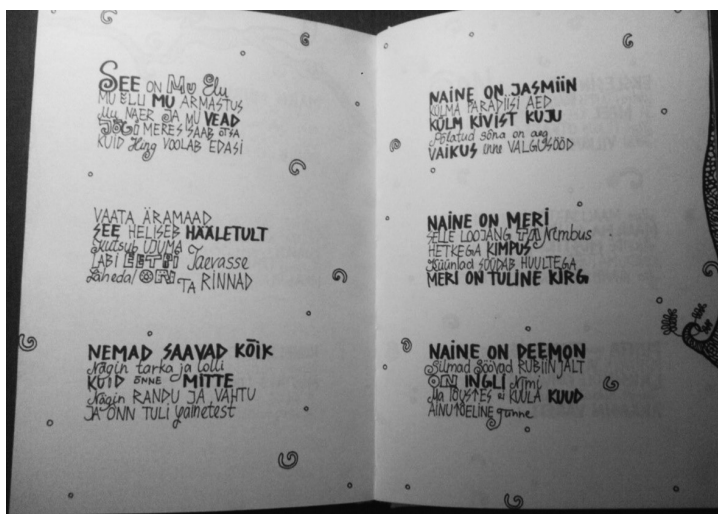 SEE ON MU Elu
MU ELU MU ARMASTUS
Mu NAER JA MU VEAD
JÕGI MERES SAAB OTSA
KUID Hing VOOLAB EDASI
VAATA ÄRAMAAD
SEE HELISEB HÄÄLETULT
UJUMA
LÄBI EETRI Taevasse
Lähedal ON TA RINNAD
NEMAD SAAVAD KÕIK
Nägin tarka ja lolli
KUID ÕNNE MITTE
Nägin RANDU JA VAHTU
JA ÕNN TULI vainetest
NAINE ON JASMIIN
KOLMA PARADIISI AED
KÜLM KIVIST KUJU
Põlatud sõna on aeg
VAIKUS enne VALGUSÖÖD
NAINE ON MERI
SELLE LOOJANG TA Nimbus
HETKEGA KIMPUS
Küünlad SÜÜDAB HUULTEGA
MERI ON TULINE KIRG
NAINE ON DEEMON
Silmad Söövad RUBIINJALT
ON INGLI Nimi
Ma TÕUSTES ei KUULA KUUD
AINUTÕELINE tunne